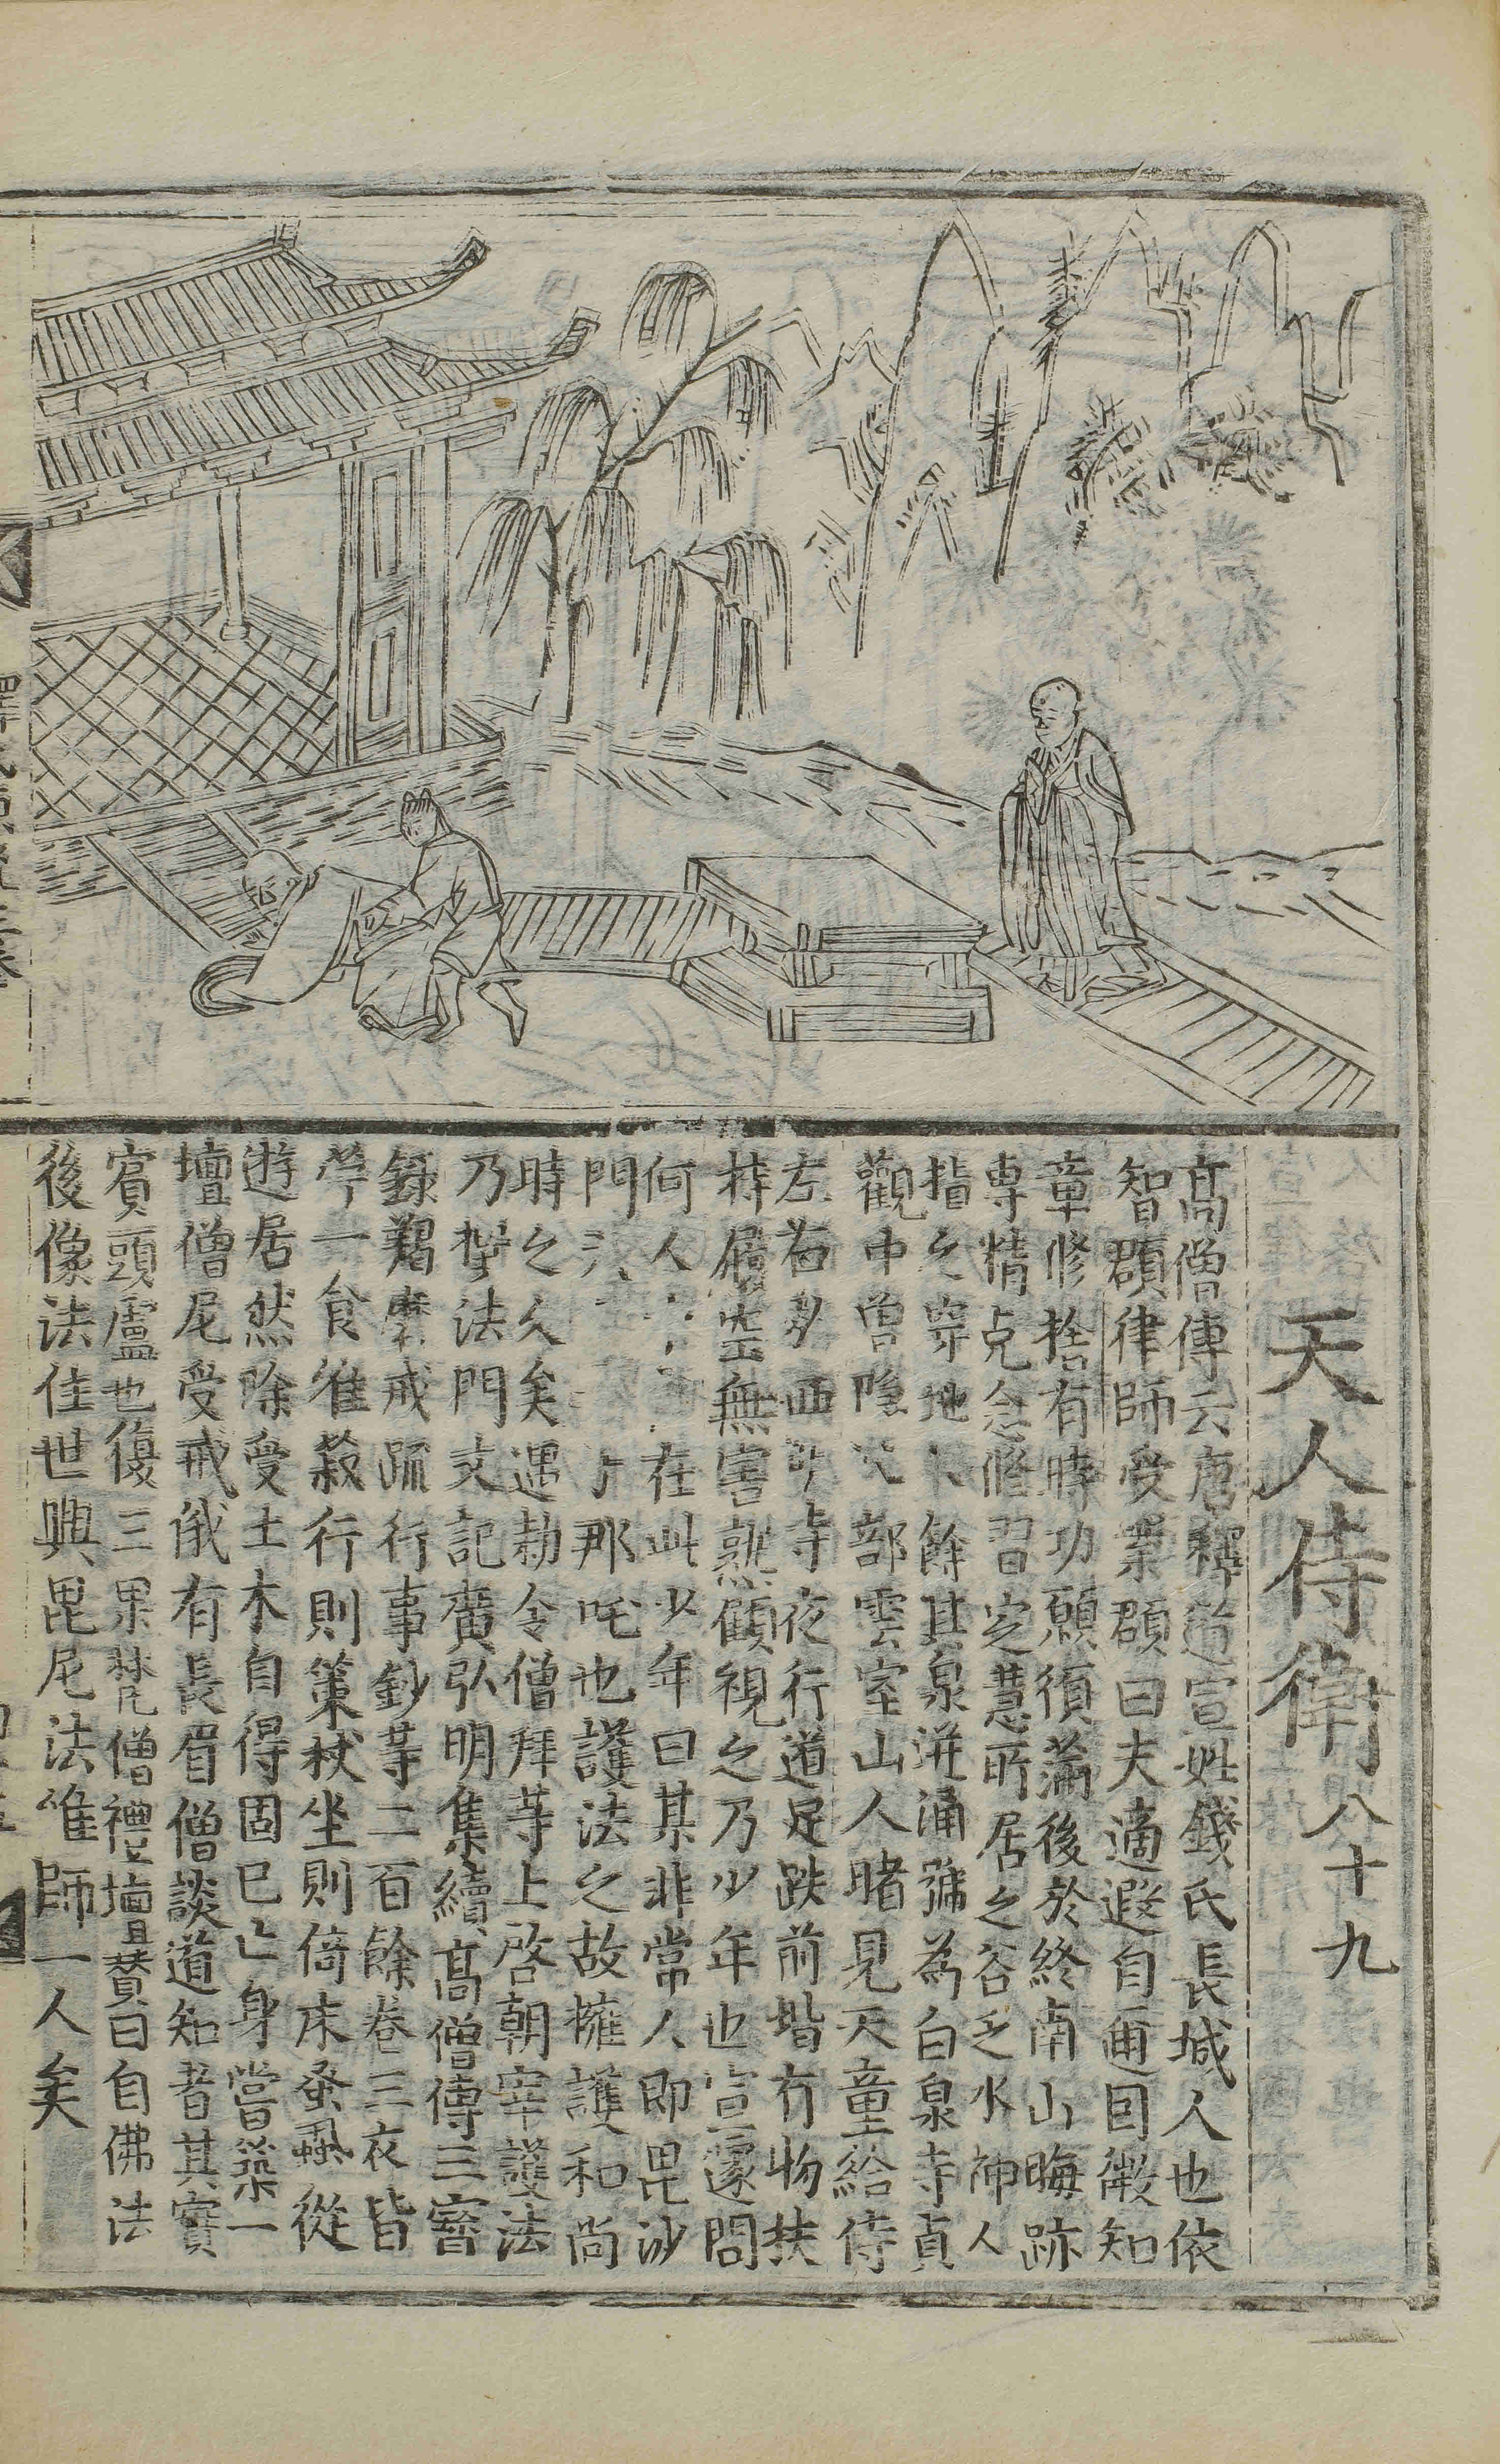 天人侍衛 八十九
髙僧傳云唐釋道宣姓錢氏長城人也依
智頵律師受業頵曰夫適遐自邇因微知
章修捨有時功願須滿後於終南山晦跡
専精克念修習定慧所居之谷乏水神人
指之穿地 餘其泉迸涌號為白泉寺貞
觀中曾隐 部雲室山人睹見天童給侍
左右 西 寺夜行道足跌前堦有物扶
持履空無害熟顧視之乃少年也宣遽問
何人 在此少年曰某非常人即毘沙
門 那吒也護法之故擁護和尚
時之久矣遇勅令僧拜等上啓朝宰護法
乃撰法門文記廣弘明集續髙僧傳三寳
録羯磨戒疏行事鈔等二百餘卷三衣皆
苧一食惟菽行則策杖坐則倚床蚤虱從
遊居然除受土木自得固巳亡身嘗築一
壇僧尼受戒俄有長眉僧談道知者其實
賓頭盧也復三果梵僧禮壇賛曰自佛法
後像法住世興毘尼法惟師一人矣